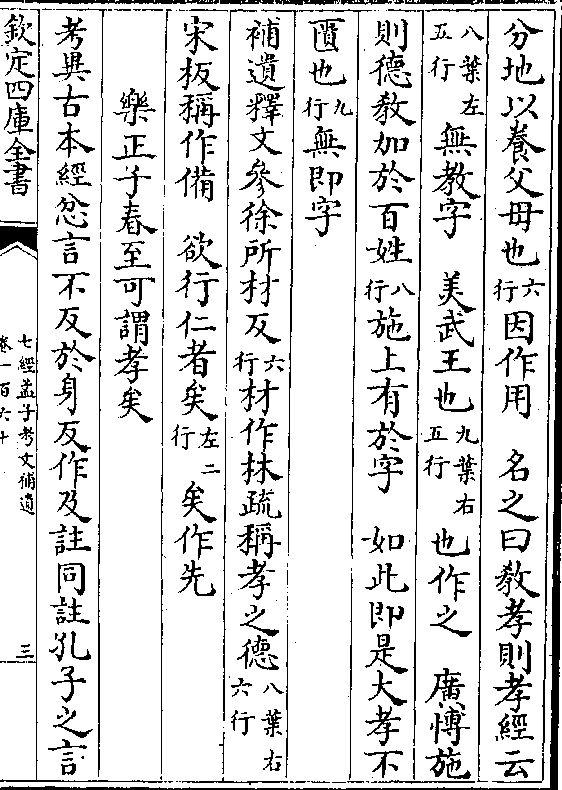 分地以養父母也六行因作用　名之曰敎孝則孝經云
八葉左五行無敎字　美武王也九葉右五行也作之　廣愽施
則德敎加於百姓八行施上有於字　如此即是大孝不
匱也九行無即字
補遺釋文參徐所材反六行材作林疏稱孝之德八葉右六行
宋板稱作備　欲行仁者矣左二行矣作先
樂正子春至可謂孝矣
考異古本經忿言不反於身反作及註同註孔子之言
欽定四庫全書
七經孟子考文補遺
卷一百六十
三